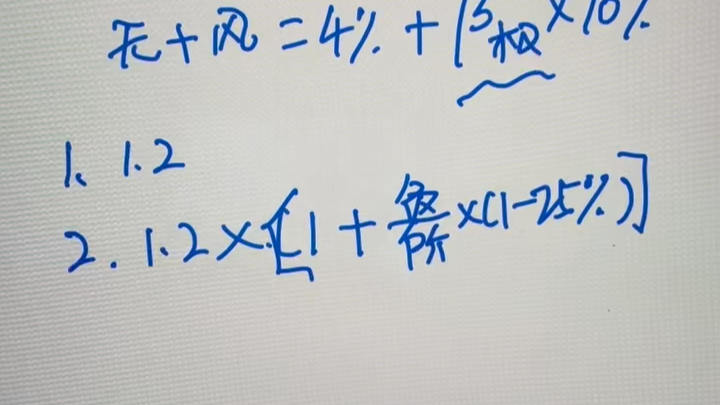 无+风=4%+β权×10%
1、1.2
2.1.2×[1+负/所×(1-25%)]